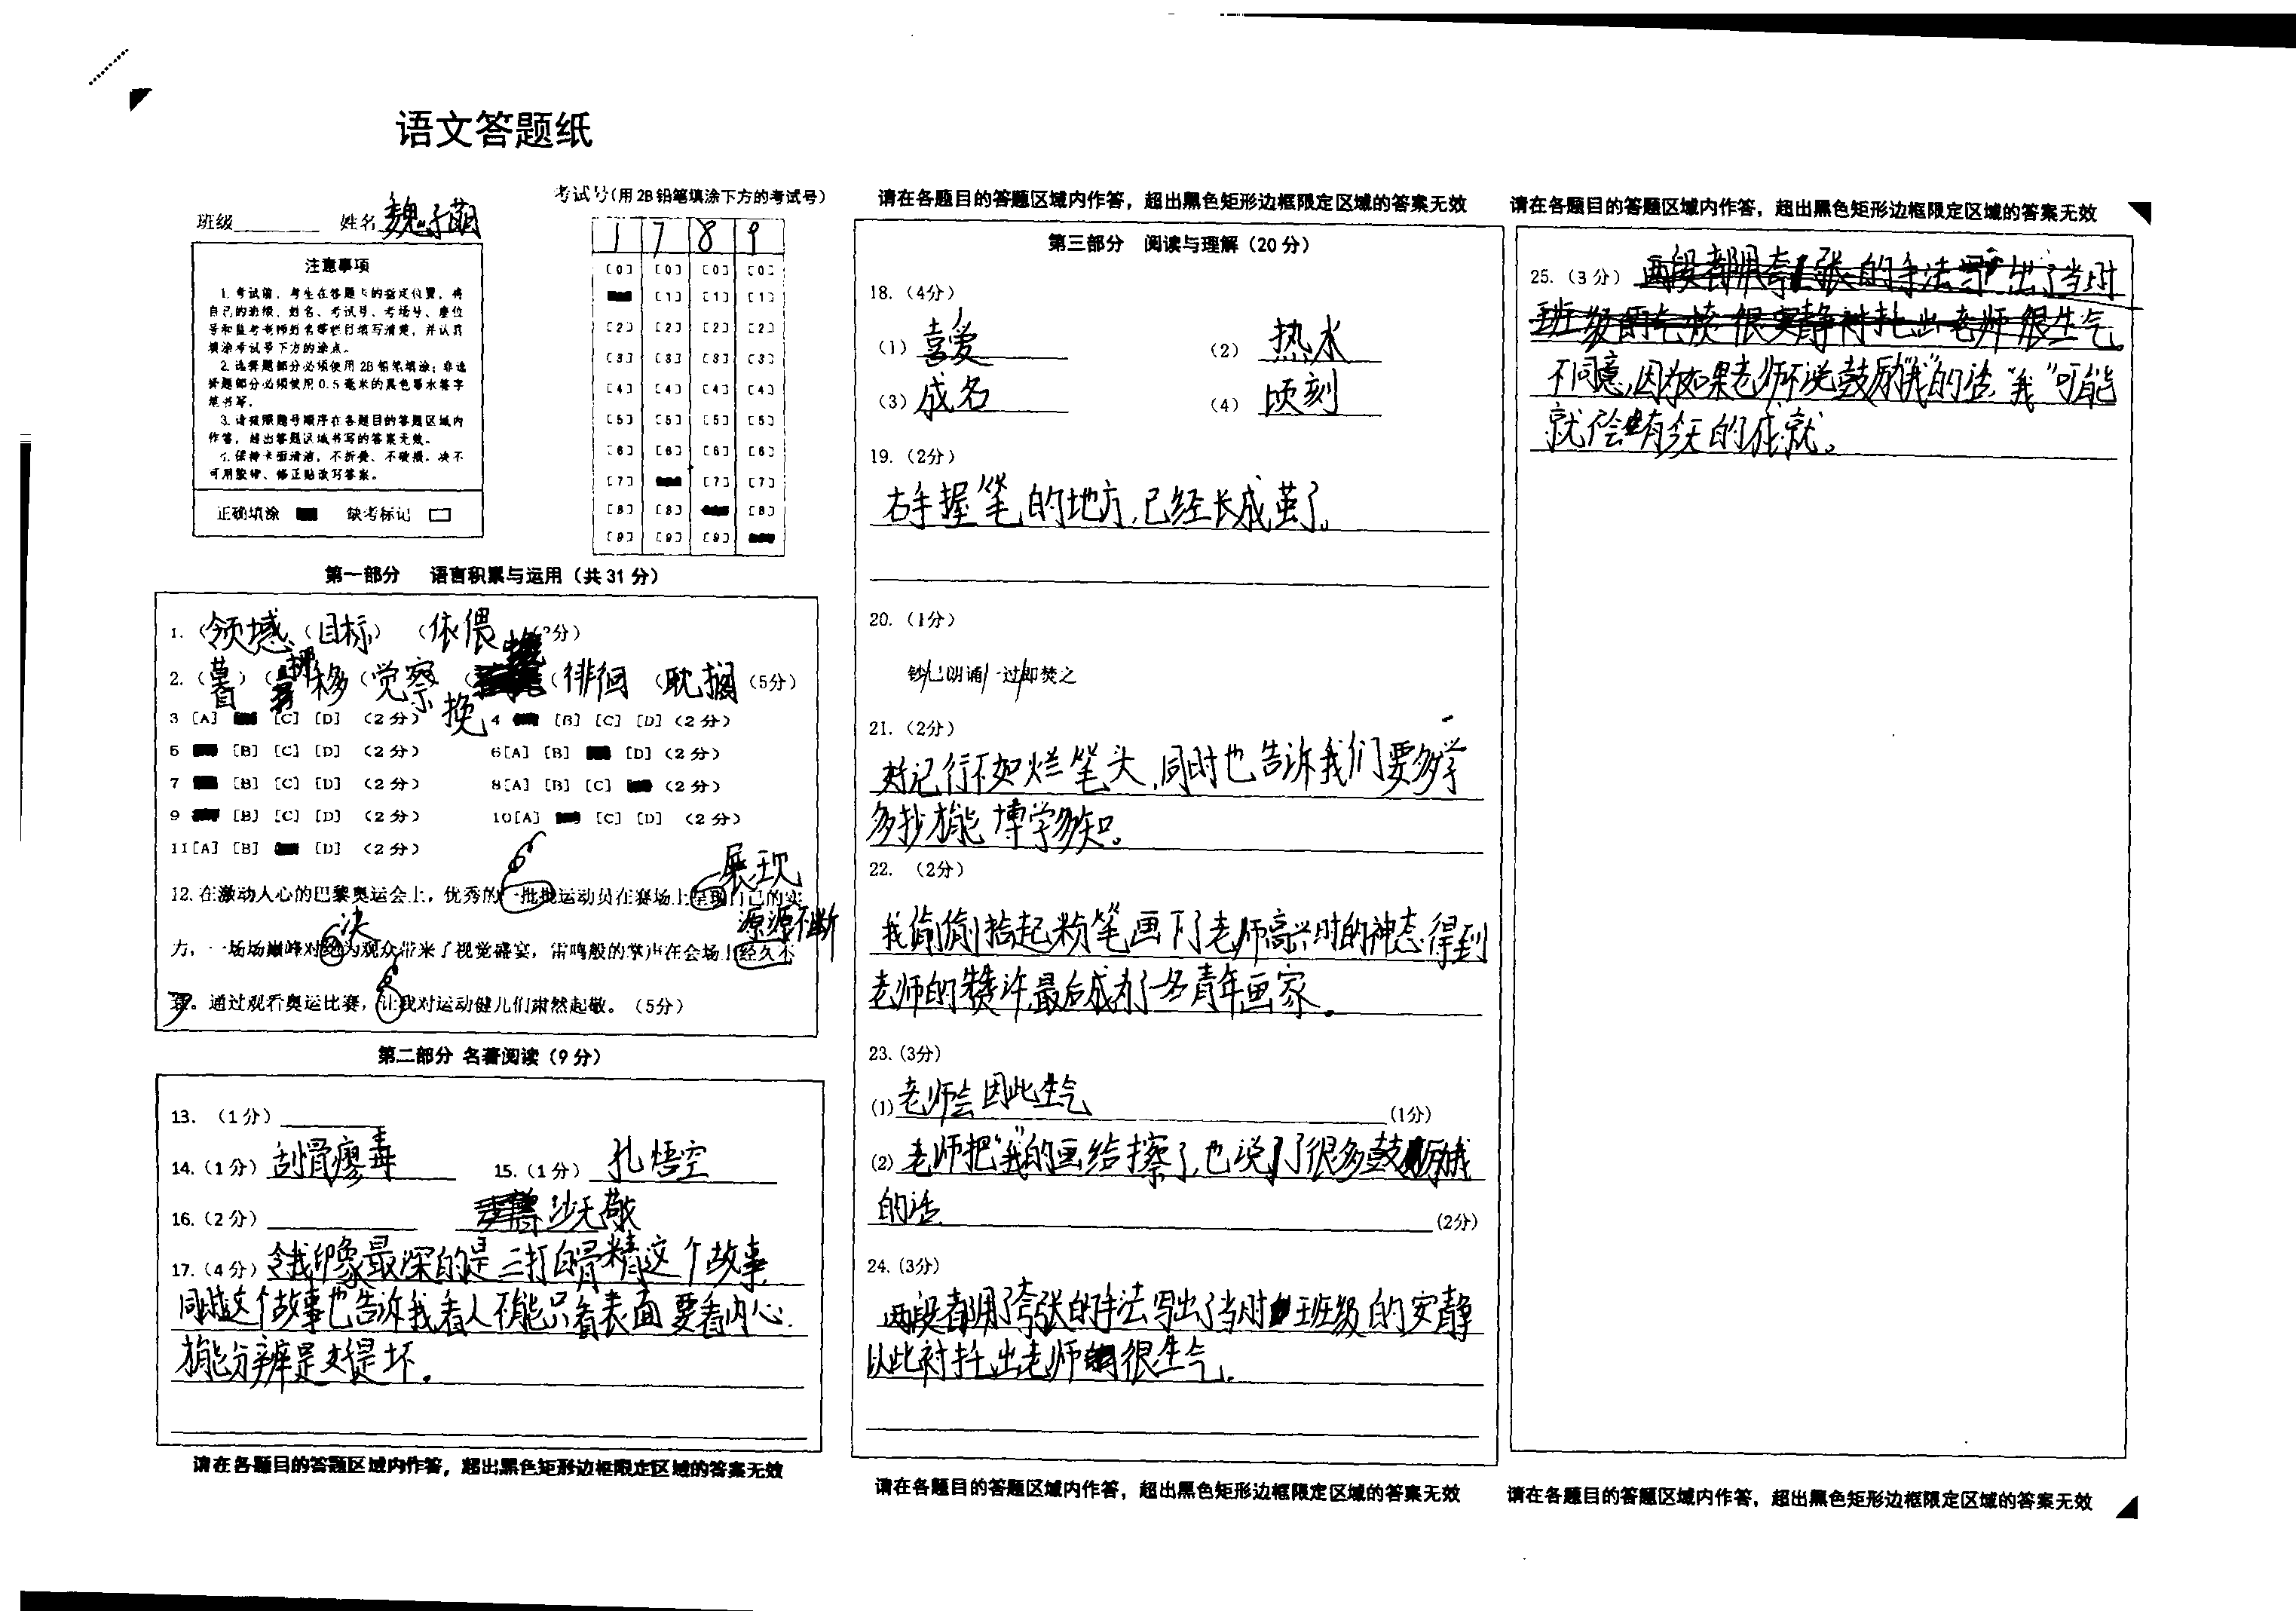 语文答题纸
班级 姓名 魏子萌
考试号(用2B铅笔填涂下方的考试号)
1 7 8 9
[0] [0] [0] [0]
[1] [1] [1]
[2] [2] [2] [2]
[3] [3] [3] [3]
[4] [4] [4] [4]
[5] [5] [5] [5]
[6] [6] [6] [6]
[7] [7] [7]
[8] [8] [8]
[9] [9] [9]
注意事项
1.考试前,考生在答题卡的指定位置,将
自己的班级、姓名、考试号、考场号、座位
号和监考老师姓名等栏目填写清楚,并认真
填涂考试号下方的涂点。
2.选择题部分必须使用2B铅笔填涂;非选
择题部分必须使用0.5毫米的黑色墨水签字
笔书写。
3.请按照题号顺序在各题目的答题区域内
作答,超出答题区域书写的答案无效。
4.保持卡面清洁,不折叠、不破损。决不
可用胶带、修正贴改写答案。
正确填涂 缺考标记
第一部分 语言积累与运用(共31分)
1.(领域)(目标)(依偎)
2.(暮)(挪移)(觉察)(挽)(徘徊)(耽搁)(5分)
3 [A] [C] [D] (2分) 4 [B] [C] [D] (2分)
5 [B] [C] [D] (2分) 6[A] [B] [D] (2分)
7 [B] [C] [D] (2分) 8[A] [B] [C] (2分)
9 [B] [C] [D] (2分) 10[A] [C] [D] (2分)
11[A] [B] [D] (2分)
展现
12.在激动人心的巴黎奥运会上,优秀的一批批运动员在赛场上呈现自己的实
决 源源不断
力,一场场巅峰对绝为观众带来了视觉盛宴,雷鸣般的掌声在会场上经久不
衰。通过观看奥运比赛,让我对运动健儿们肃然起敬。(5分)
第二部分 名著阅读(9分)
13.(1分)
14.(1分) 刮骨疗毒 15.(1分) 孙悟空
16.(2分) 沙无敬
17.(4分) 令我印象最深的是三打白骨精这个故事
同时这个故事也告诉我看人不能只看表面要看内心.
才能分辨是好是坏。
请在各题目的答题区域内作答,超出黑色矩形边框限定区域的答案无效
请在各题目的答题区域内作答,超出黑色矩形边框限定区域的答案无效
第三部分 阅读与理解(20分)
18.(4分)
(1) 喜爱 (2) 热水
(3) 成名 (4) 顷刻
19.(2分)
右手握笔的地方,已经长成茧了。
20.(1分)
钞/已朗诵/一过/即焚之
21.(2分)
好记行不如烂笔头,同时也告诉我们要多学
多抄才能博学多知。
22.(2分)
我偷偷拾起粉笔画下了老师高兴时的神态.得到
老师的赞许.最后成为了一名青年画家。
23.(3分)
(1) 老师会因此生气 (1分)
(2) 老师把“我”的画给擦了,也说了很多鼓励我
的话 (2分)
24.(3分)
两段都用了夸张的手法写出了当时班级的安静
以此衬托出老师很生气.
请在各题目的答题区域内作答,超出黑色矩形边框限定区域的答案无效
请在各题目的答题区域内作答,超出黑色矩形边框限定区域的答案无效
25.(3分) 两段都用夸张的手法写出了当时
班级的气愤很安静衬托出老师很生气。
不同意,因为如果老师不说鼓励“我”的话,“我”可能
就不会有今天的成就。
请在各题目的答题区域内作答,超出黑色矩形边框限定区域的答案无效